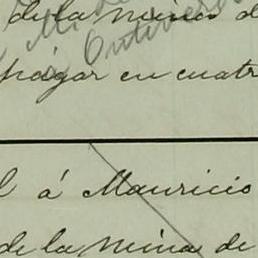 de la mina d
pagar en cuatr
l á Mauricio
de la mina de